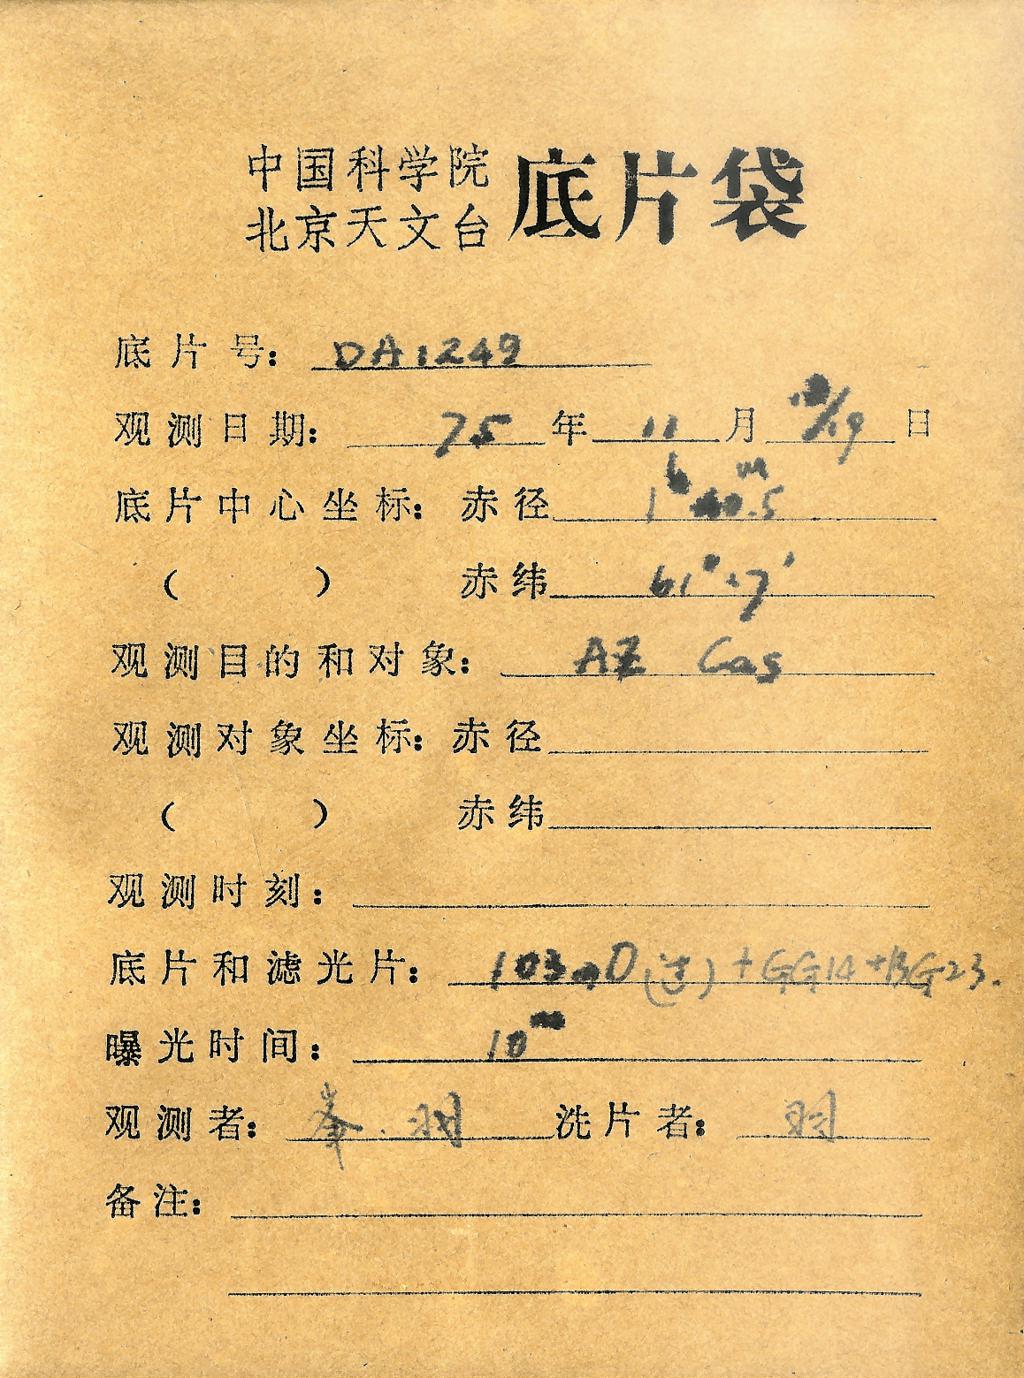 中国科学院
北京天文台 底片袋
底片号: DA1249
观测日期: 75年 11月 /19日
底片中心坐标: 赤径 1h 40m.5
( ) 赤纬 61° 17'
观测目的和对象: AZ Cas
观测对象坐标: 赤径
( ) 赤纬
观测时刻:
底片和滤光片: 103aD(过)+GG14+BG23.
曝光时间: 10m
观测者: 峯.羽 洗片者: 羽
备注: